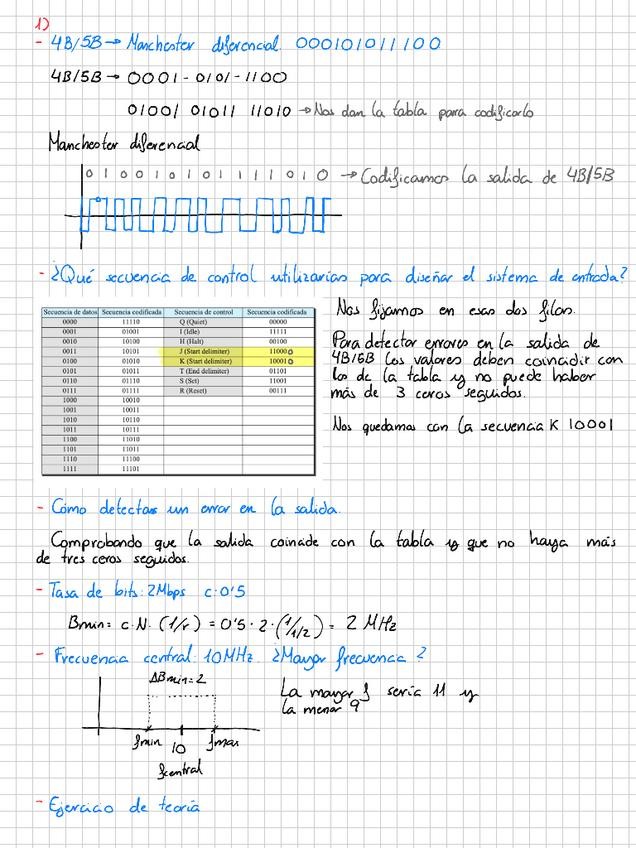 1)
- 4B/5B → Manchester diferencial. 000101011100
4B/5B → 0001 - 0101 - 1100
01001 01011 11010 → Nos dan la tabla para codificarlo
Manchester diferencial
0 1 0 0 1 0 1 0 1 1 1 1 0 1 0 → Codificamos la salida de 4B/5B
- ¿Qué secuencia de control utilizarías para diseñar el sistema de entrada?
Secuencia de datos Secuencia codificada Secuencia de control Secuencia codificada
0000 11110 Q (Quiet) 00000
0001 01001 I (Idle) 11111
0010 10100 H (Halt) 00100
0011 10101 J (Start delimiter) 11000
0100 01010 K (Start delimiter) 10001
0101 01011 T (End delimiter) 01101
0110 01110 S (Set) 11001
0111 01111 R (Reset) 00111
1000 10010
1001 10011
1010 10110
1011 10111
1100 11010
1101 11011
1110 11100
1111 11101
Nos fijamos en esas dos filas.
Para detectar errores en la salida de
4B/5B los valores deben coincidir con
los de la tabla y no puede haber
más de 3 ceros seguidos.
Nos quedamos con la secuencia K 10001
- Cómo detectas un error en la salida.
Comprobando que la salida coincide con la tabla y que no haya más
de tres ceros seguidos.
- Tasa de bits: 2Mbps c=0'5
Bmin= c·N·(1/r) = 0'5 · 2 · (1/1/2) = 2 MHz
- Frecuencia central: 10MHz. ¿Mayor frecuencia?
ΔBmin=2
La mayor f sería 11 y
la menor 9
fmin 10 fmax
fcentral
- Ejercicio de teoría